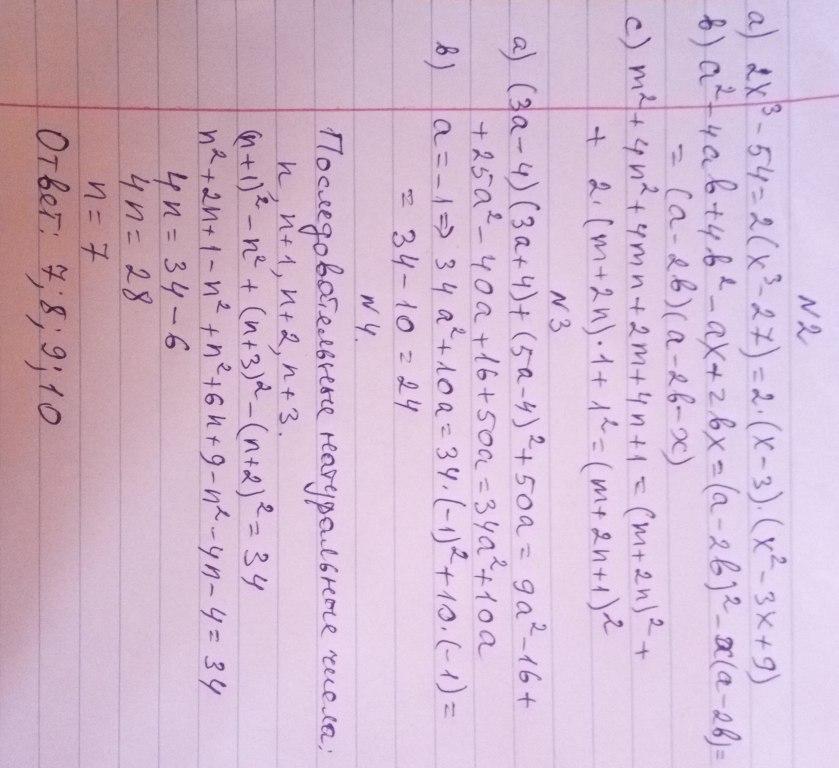 N2
a) 2x³ - 54 = 2(x³ - 27) = 2·(x - 3)·(x² - 3x + 9)
b) a² - 4ab + 4b² - ax + 2bx = (a - 2b)² - x(a - 2b) =
= (a - 2b)(a - 2b - x)
c) m² + 4n² + 4mn + 2m + 4n + 1 = (m + 2n)² +
+ 2·(m + 2n)·1 + 1² = (m + 2n + 1)²
N3
a) (3a - 4)(3a + 4) + (5a - 4)² + 50a = 9a² - 16 +
+ 25a² - 40a + 16 + 50a = 34a² + 10a
b) a = -1 ⇒ 34a² + 10a = 34·(-1)² + 10·(-1) =
= 34 - 10 = 24
N4.
Последовательные натуральные числа:
n, n+1, n+2, n+3.
(n+1)² - n² + (n+3)² - (n+2)² = 34
n² + 2n + 1 - n² + n² + 6n + 9 - n² - 4n - 4 = 34
4n = 34 - 6
4n = 28
n = 7
Ответ: 7; 8; 9; 10